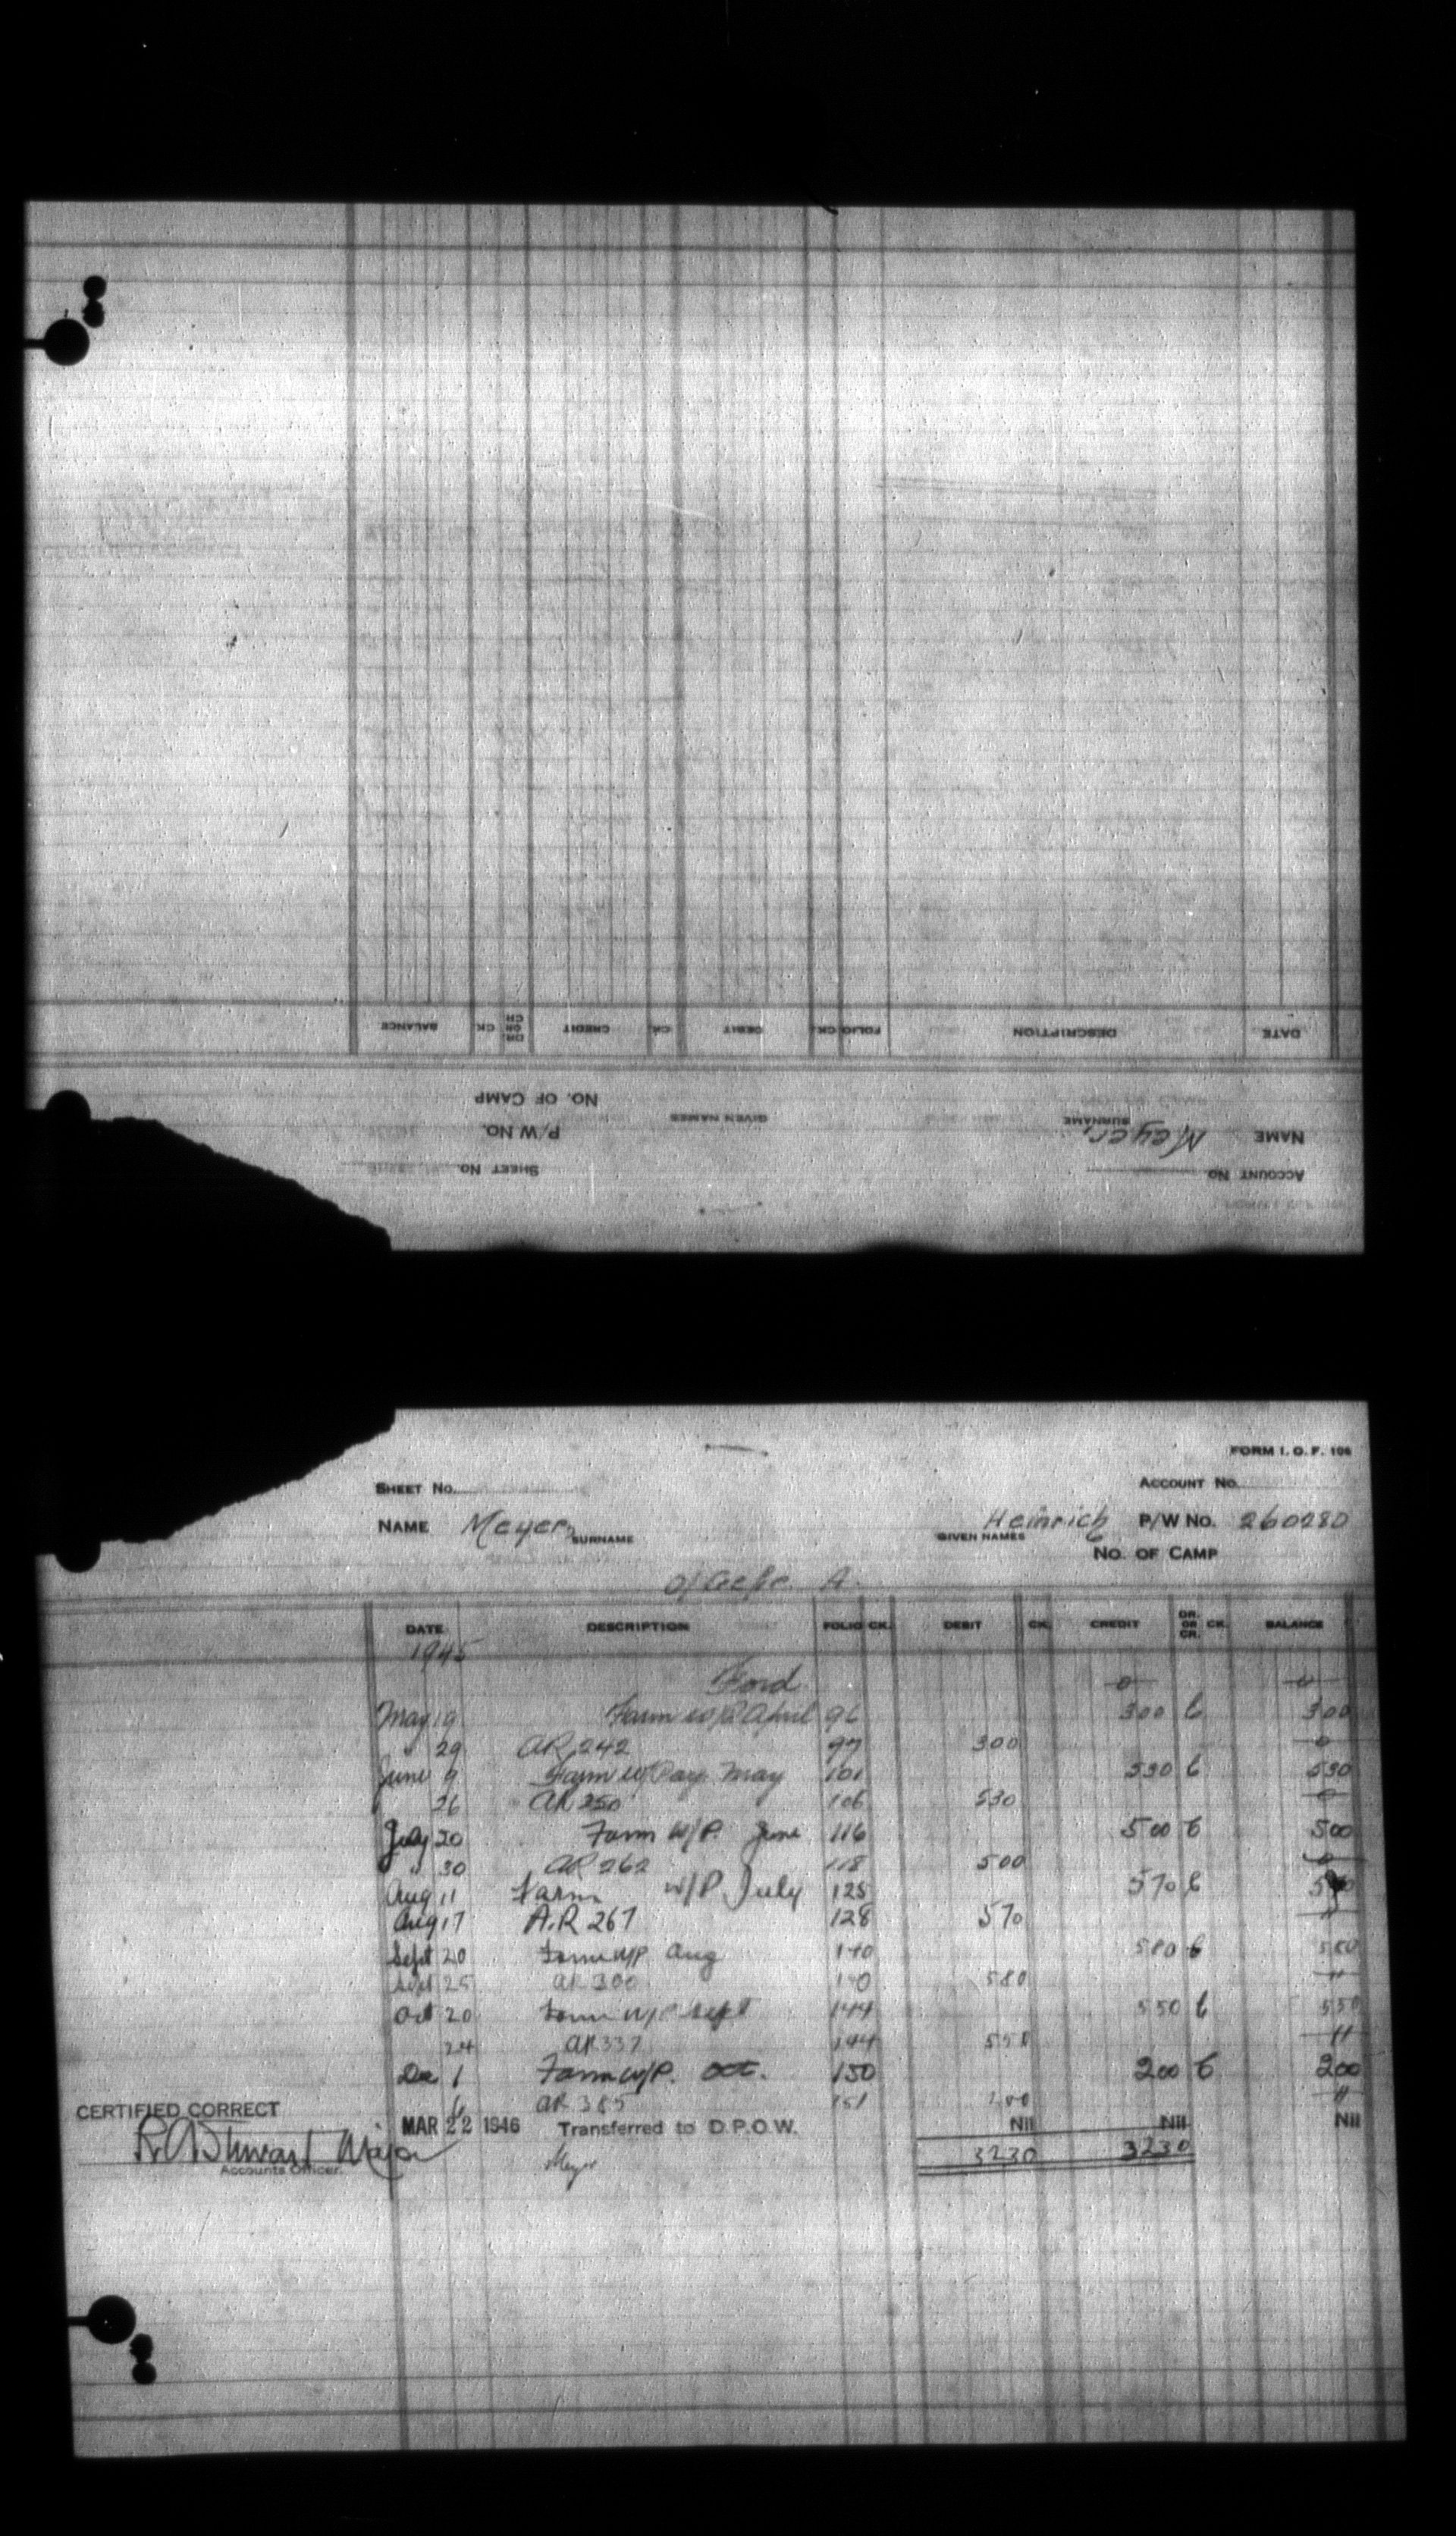 BALANCE CK. DR. OR CR. CREDIT CK. DEBIT FOLIO CK. DESCRIPTION DATE
NO. OF CAMP
P/W NO. GIVEN NAMES SURNAME Meyer, NAME
SHEET NO. ACCOUNT NO.
FORM I. O. F. 106
SHEET NO. ACCOUNT NO.
NAME Meyer, SURNAME Heinrich GIVEN NAMES P/W NO. 260280
NO. OF CAMP
DATE DESCRIPTION FOLIO CK. DEBIT CK. CREDIT DR. OR CR. CK. BALANCE
1945
Ford 0 0
May 19 Farm w/P April 96 300 C 300
" 29 AR 242 97 300 0
June 9 Farm w/Pay May 101 530 C 530
26 AR 250 106 530 0
July 20 Farm W/P. June 116 500 C 500
" 30 AR 262 118 500 0
Aug 11 Farm W/P July 125 570 C 570
Aug 17 A.R 267 128 570 "
Sept 20 Farm W/P Aug 140 580 C 580
Sept 25 AR 300 580 "
Oct 20 Farm W/P Sept 144 550 C 550
24 AR 337 144 550 "
Dec 1 Farm W/P. Oct. 150 200 C 200
6 AR 385 151 200 "
CERTIFIED CORRECT
MAR 22 1946 Transferred to D.P.O.W. Nil Nil Nil
R A Stewart Major Meyer 3230 3230
Accounts Officer.